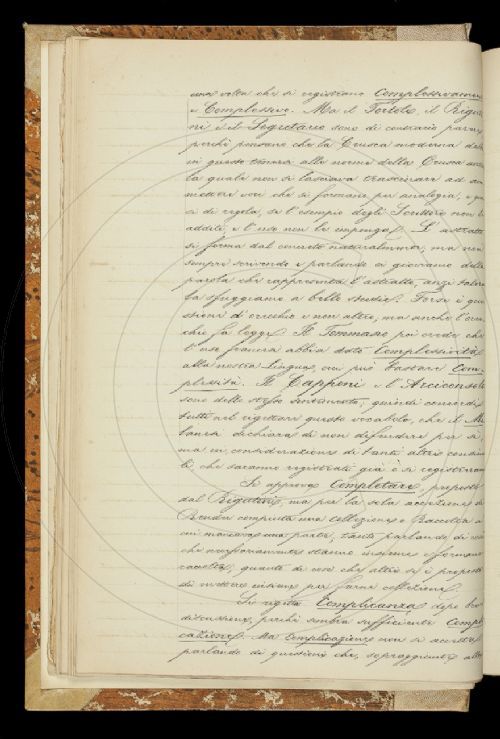 una volta che si registrano Complessivamen
e Complessivo. Ma il Tortoli, il Rigu
ni e il Segretario sono di contrario parere
perchè pensano che la Crusca moderna debba
in questo tenersi alle norme della Crusca
la quale non si lasciava trascinare ad am
mettere voci che si formano per analogia, e
si di regola, se l'esempio degli Scrittori non le
addita e l'uso non le impenga. L'astratto
si forma dal concreto naturalmente, ma non
sempre scrivendo e parlando ci gioviamo della
parola che rappresenta l'astratto, anzi talora
la sfuggiamo a bello studio. Forse è que
stione di orecchio e non altro, ma anche l'orec
chio fa legge. Il Tommaseo poi crede che
l'uso francese abbia dato Complessività
alla nostra lingua, cui può bastare Com
plessità. Il Capponi e l'Arciconsolo
sono dello stesso sentimento; quindi concordi
tutti nel rigettare questo vocabolo, che il Mi
lanesi dichiara di non difendere per sè,
ma in considerazione di tanti altri consimi
li, che saranno registrati già e si registreranno
Si approva Completare, proposto
dal Rigutini, ma per la sola accezione di
Render compiuta una collezione o Raccolta a
cui mancava una parte, tanto parlando di cose
che necessariamente stanno insieme e formano
raccolta, quanto di cose che altri si è proposto
di mettere insieme per farne collezione.
Si rigetta Complicanza dopo breve
discussione, perchè sembra sufficiente Compli
cazione. Ma Complicazione non si accetta
parlando di questioni che, sopraggiunte